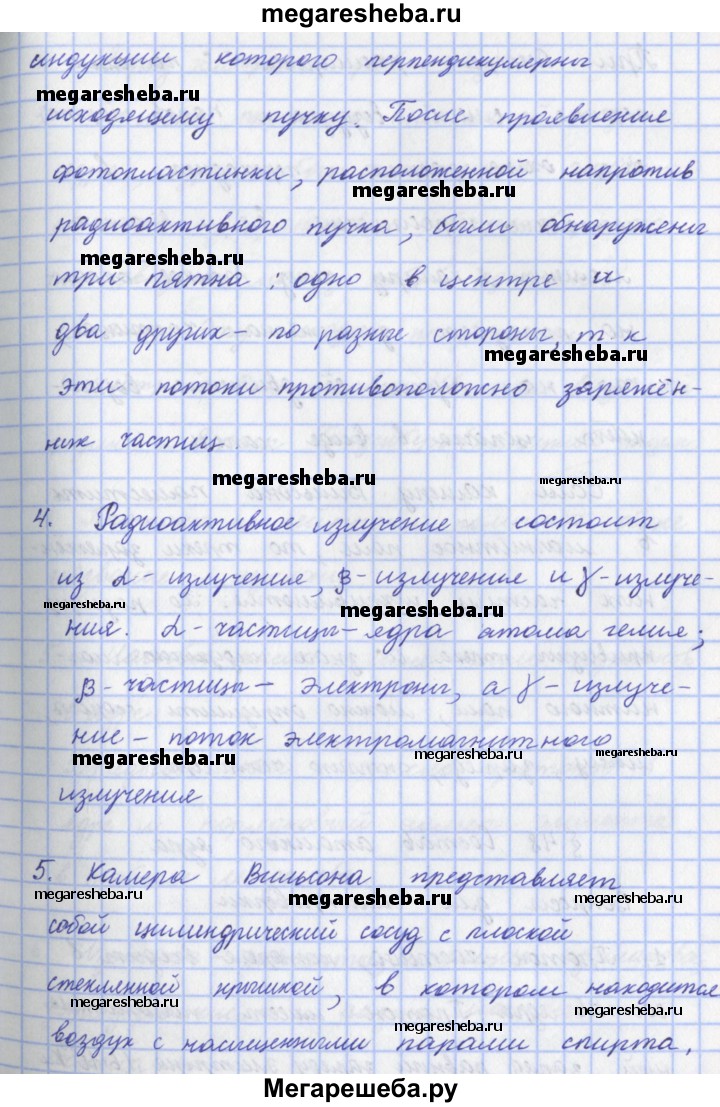 megaresheba.ru
индукции которого перпендикулярны
megaresheba.ru
исходящему пучку. После проявления
фотопластинки, расположенной напротив
megaresheba.ru
радиоактивного пучка, были обнаружены
megaresheba.ru
три пятна: одно в центре и
два других – по разные стороны, т к
megaresheba.ru
эти потоки противоположно заряжён-
них частиц.
megaresheba.ru megaresheba.ru
4. Радиоактивное излучение состоит
из α - излучения, β - излучения и γ - излуче-
megaresheba.ru megaresheba.ru
ния. α - частицы – ядра атома гелия;
β - частицы – электроны, а γ - излуче-
ние – поток электромагнитного
megaresheba.ru megaresheba.ru
излучения
5. Камера Вильсона представляет
megaresheba.ru megaresheba.ru megaresheba.ru
собой цилиндрический сосуд с плоской
стеклянной крышкой, в котором находится
megaresheba.ru megaresheba.ru
воздух с насыщенными парами спирта,
megaresheba.ru megaresheba.ru
Мегарешеба.ру